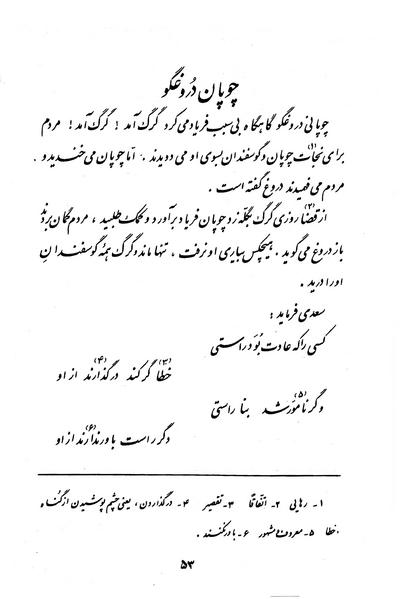 چوپان دروغگو
چوپانی دروغگو گاهگاه بی‌سبب فریاد می‌کرد گرگ آمد! گرگ آمد! مردم
برای نجات(۱) چوپان و گوسفندان بسوی او می‌دویدند. امّا چوپان می‌خندید و
مردم می‌فهمیدند دروغ گفته است.
از قضا(۲) روزی گرگ بگلّه زد چوپان فریاد برآورد و کمک طلبید، مردم گمان بردند
باز دروغ می‌گوید. هیچکس بیاری او نرفت، تنها ماند و گرگ همهٔ گوسفندانِ
او را درید.
سعدی فرماید:
کسی را که عادت بُوَد راستی
خطا(۳) گر کند درگذارند(۴) از او
وگر نامور(۵) شد بناراستی
دگر راست باور ندارند(۶) از او
۱- رهایی ۲- اتّفاقاً ۳- تقصیر ۴- درگذاردن، یعنی چشم پوشیدن از گناه
خطا ۵- معروف و مشهور ۶- باور نکنند.
۵۳